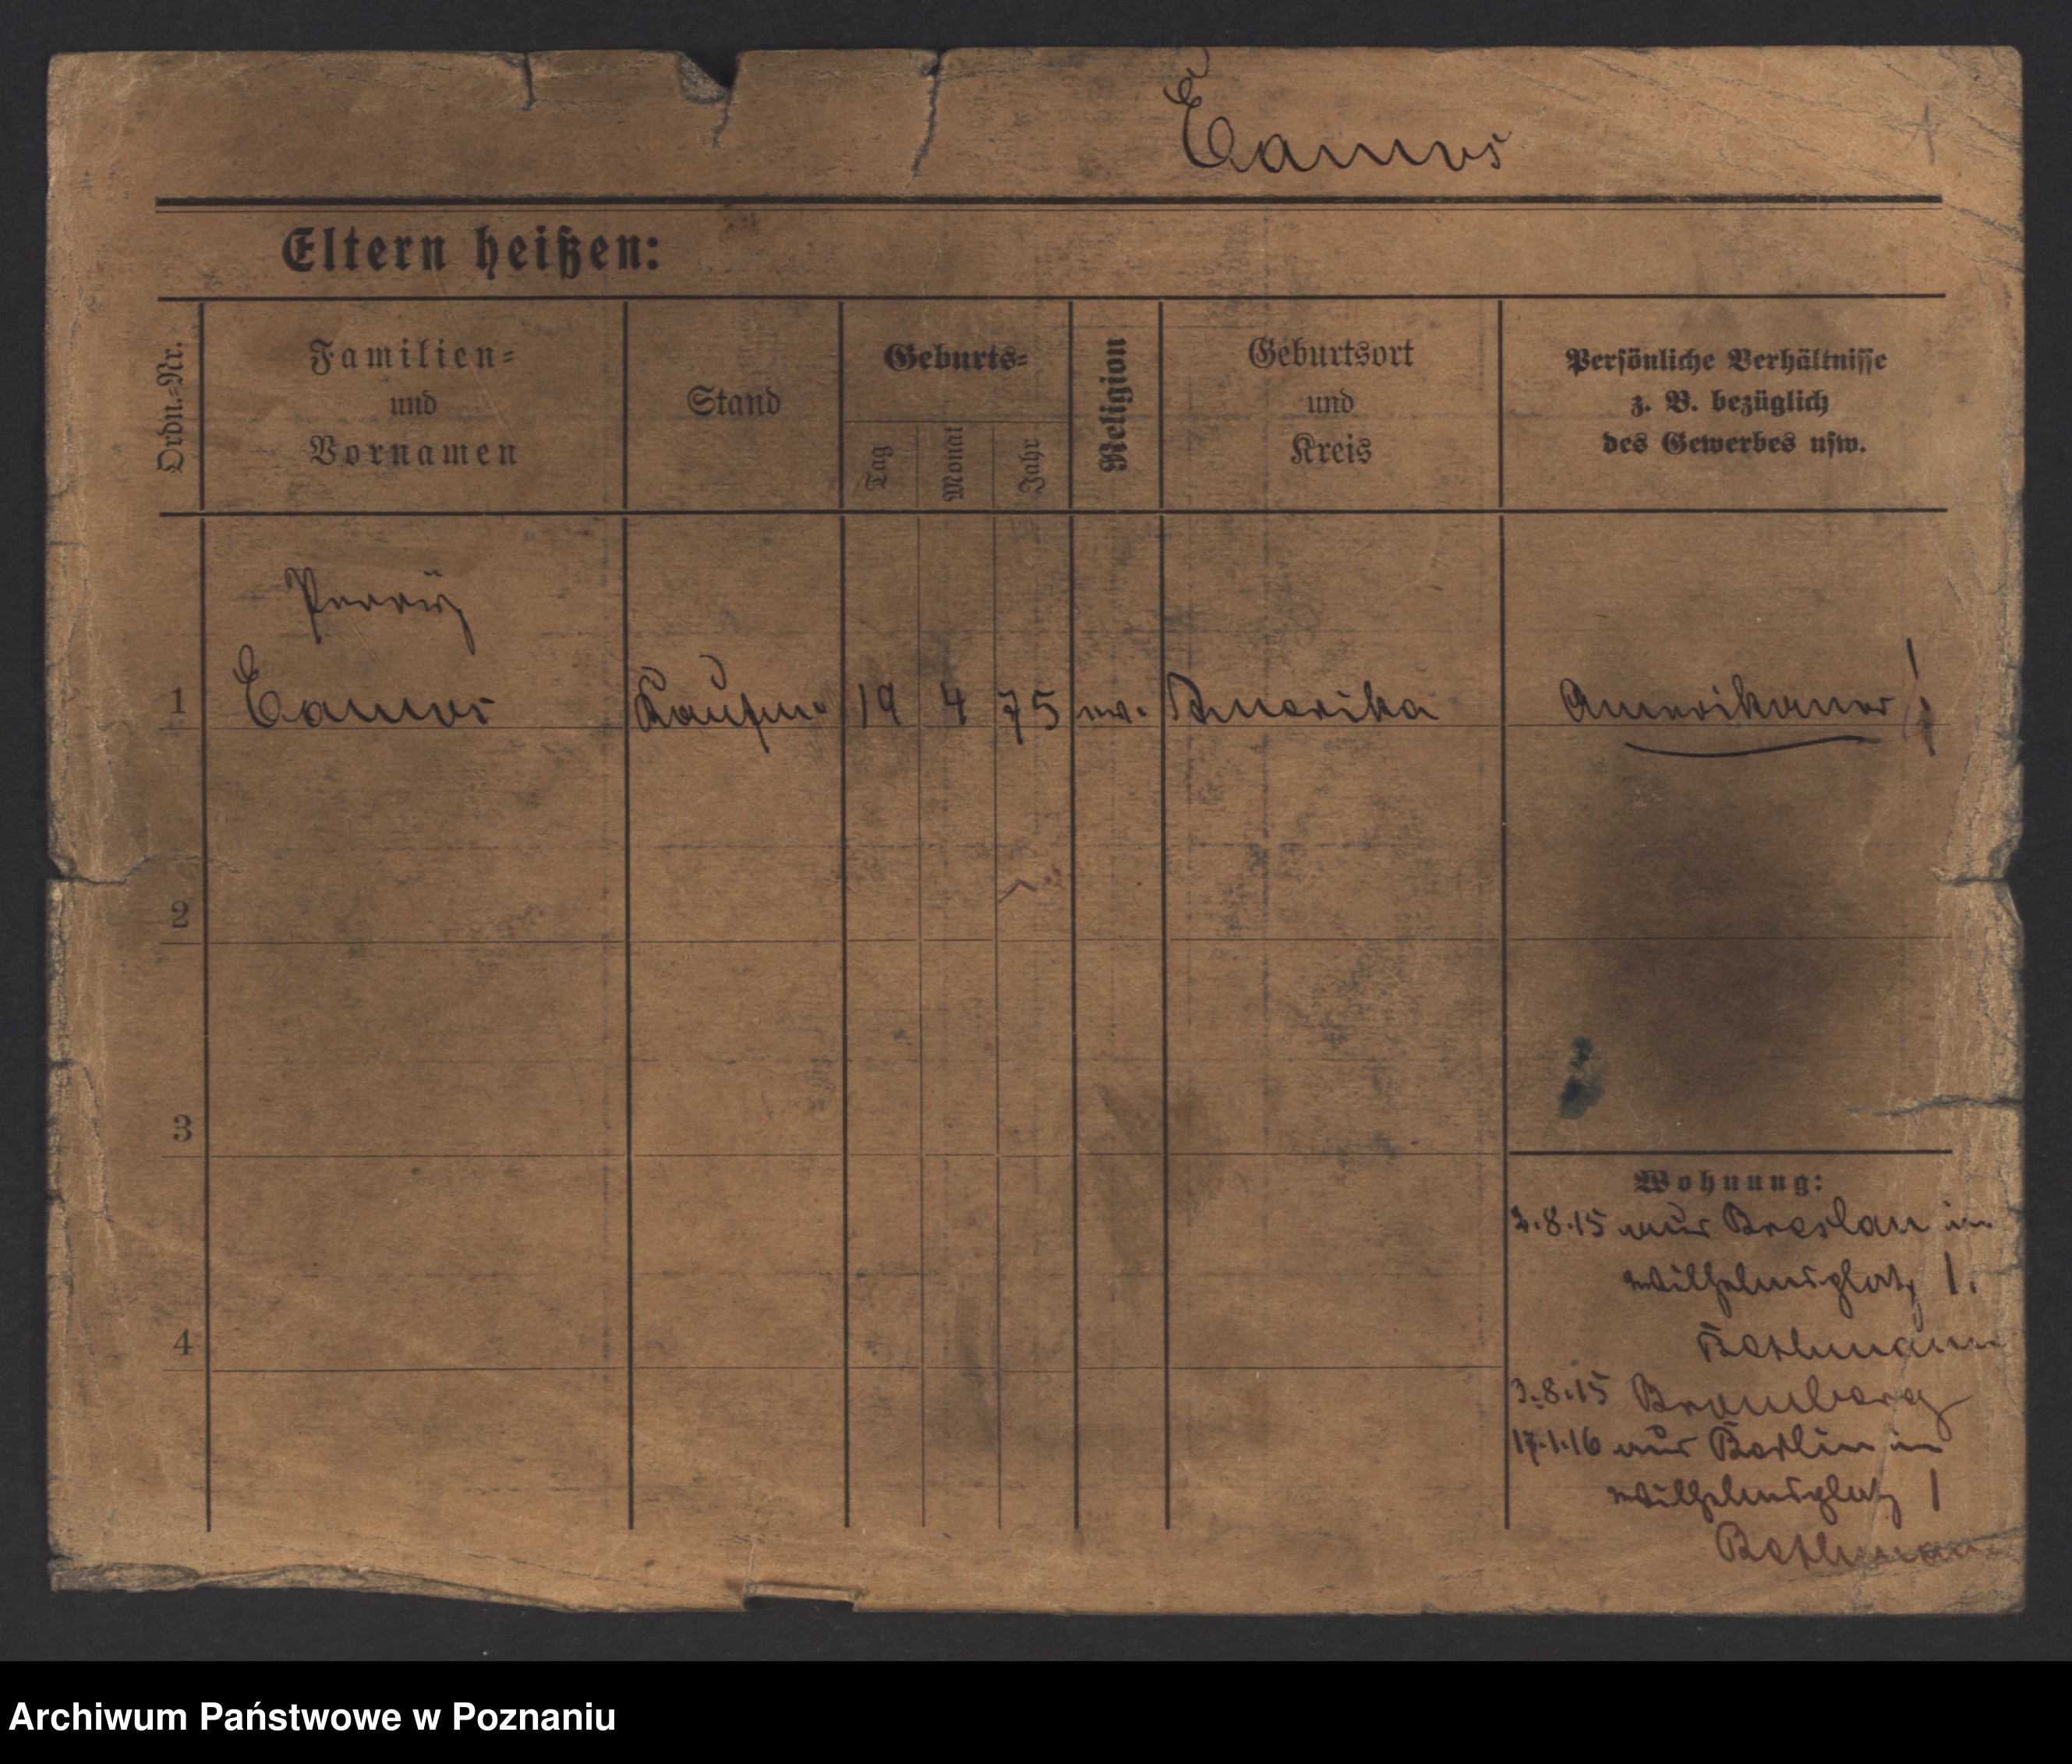 Eames
Eltern heißen:
Ordn.-Nr.
Familien-
und
Vornamen
Stand
Geburts-
Tag
Monat
Jahr
Religion
Geburtsort
und
Kreis
Persönliche Verhältnisse
z. B. bezüglich
des Gewerbes usw.
Perrÿ
1 Eames Kaufm. 19 4 75 ev. Amerika Amerikaner!
2
3
Wohnung:
2.8.15 aus Breslau in
Wilhelmsplatz 1.
4
3.8.15 Bromberg
17.1.16 aus Berlin in
Wilhelmsplatz 1
Archiwum Państwowe w Poznaniu